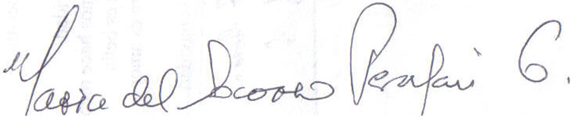 Maria del Socorro Perafan G.